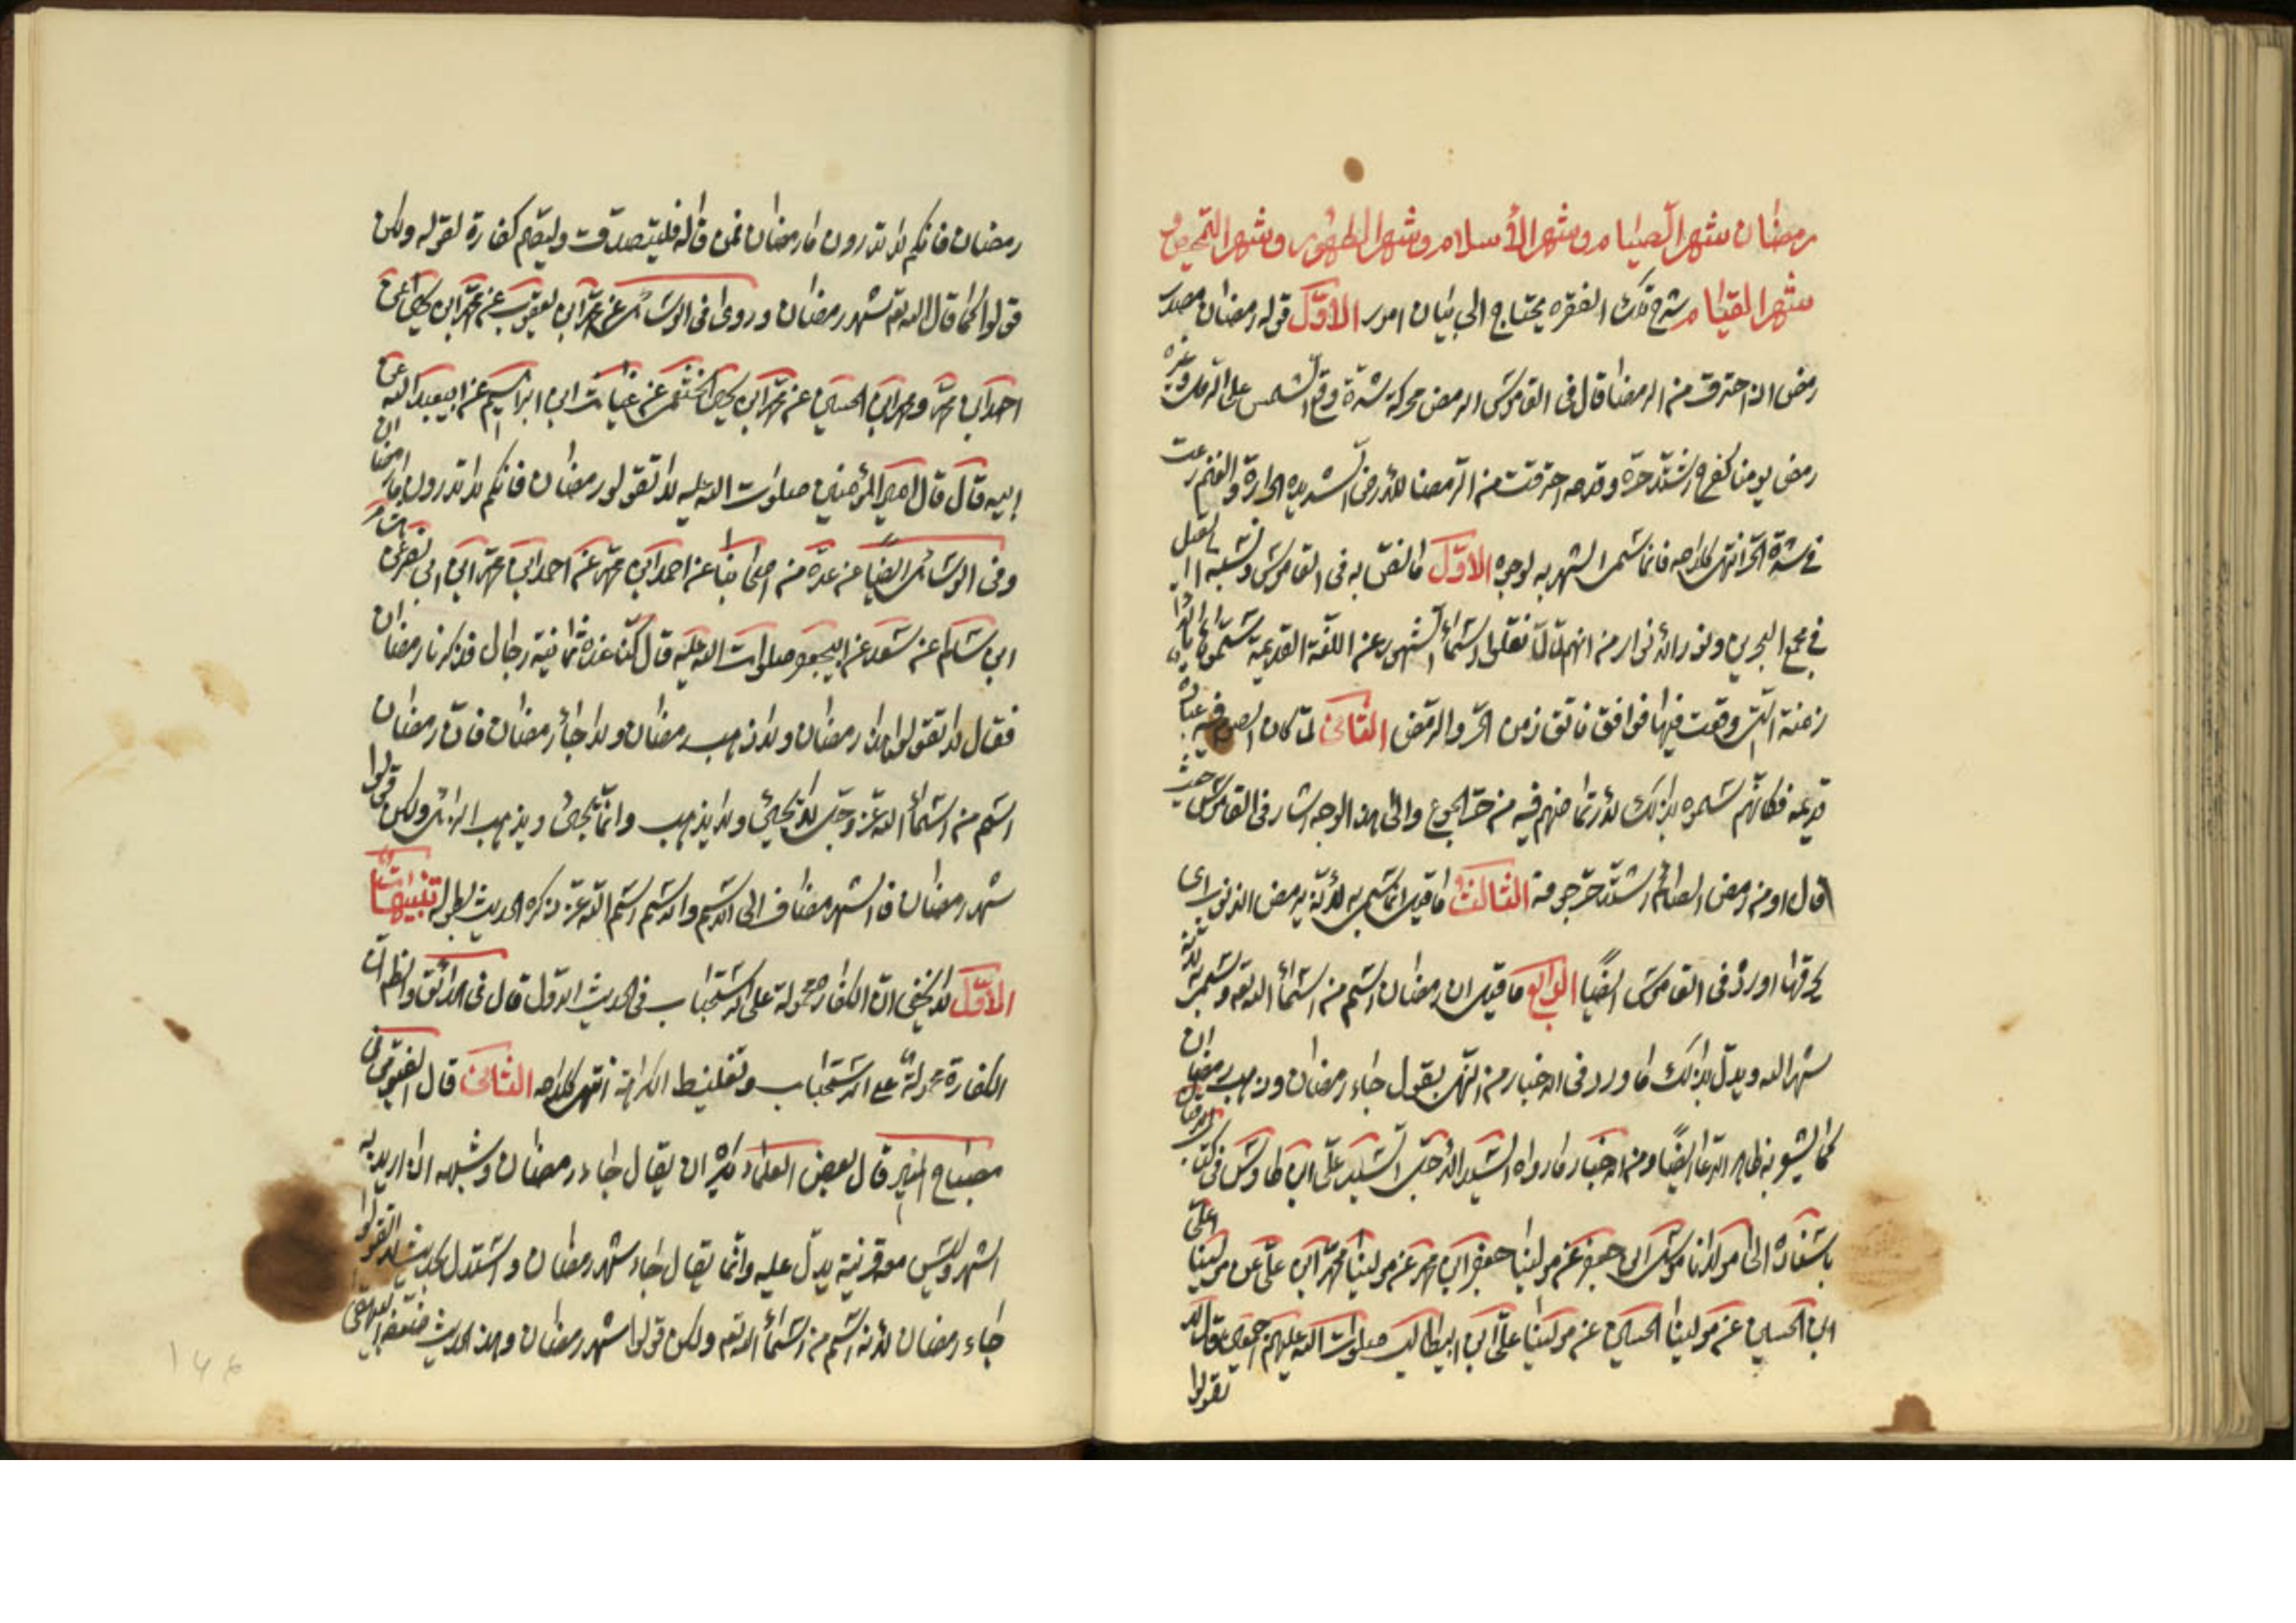 رمضان شهر الصيام وشهر الأسلام وشهر الطهور وشهر التمحيص و
شهر القيام شرح تلك الفقره يحتاج الى بيان امور الأوّل قوله رمضان مصدر
رمض اذا احترق من الرمضا قال فى القاموس الرمض محركة شدّة وقع الشمس على الرمل وغيره
رمض يومنا كفرح اشتد حرّه وقدمه احترقت من الرّمضا للأرض الشديده الحرارة والغنم رعت
فى شدّة الحرّ انتهى كلامه فانما سمى الشهر به لوجوه الأوّل ما نصّ به فى القاموس ونسبه الى القيل
فى مجمع البحرين ونور الأنوار من انهم لمّا نقلوا اسماء الشهور عن اللّغة القديمة سمّوها بالأ
زمنة التى وقعت فيها فوافق ناتق زمن الحرّ والرّمض الثانى لمّا كان الصوم فيه عبادة
قديمة فكانّهم سمّوه بذلك لأرتماضهم فيه من حرّ الجوع والى هذا الوجه اشار فى القاموس حيث
قال او من رمض الصائم اشتدّ حرّ جوفه الثالث ما قيل انما سمى به لأنّه يرمض الذنوب اى
يحرقها اورده فى القاموس ايضًا الرابع ما قيل ان رمضان اسم من اسماء الله تعه وسمى به لأنه
شهر الله ويدلّ بذلك ما ورد فى الاخبار من النّهى بقول جاء رمضان وذهب رمضان
كما يشعر به ظاهر الدعا ايضًا ومن الاخبار ما رواه السيد الأجلّ السيد علّى ابن طاوس فى كتاب
باسناده الى مولانا موسى ابن جعفر عن مولينا جعفر ابن محمد عن مولينا محمّد ابن علّى عن مولينا علىّ
ابن الحسين عن مولينا الحسين عن مولينا علّى ابن ابيطالب صلوات الله عليهم اجمعين قال لا
تقولوا
رمضان فانكم لا تدرون ما رمضان فمن قاله فليتصدق وليصم كفارة لقوله ولكن
قولوا كما قال الله تعه شهر رمضان وروى فى الوسائل عن محمّد ابن يعقوب عن محمّد ابن يحيى عن
احمد ابن محمّد ومحمد ابن الحسين عن محمّد ابن يحيى الخثعمى عن غياث ابن ابراهيم عن ابيعبد الله عن
ابيه قال قال امير المؤمنين صلوات الله عليه لا تقولو رمضان فانكم لا تدرون ما رمضان
وفى الوسائل ايضًا عن عدّة من اصحابنا عن احمد ابن محمّد عن احمد ابن محمّد ابن ابى نصر عن هشام
ابن سالم عن سعد عن ابيجعفر صلوات الله عليه قال كنّا عنده ثمانية رجال فذكرنا رمضان
فقال لا تقولوا هذا رمضان ولا ذهب رمضان ولا جاء رمضان فانّ رمضان
اسم من اسماء الله عزّ وجلّ لا يجيئ ولا يذهب وانّما يجيئ ويذهب الزائل ولكن قولوا
شهر رمضان فالشهر مضاف الى الاسم والاسم اسم الله عزّ ذكره الحديث بطوله تنبيهات
الأوّل لا يخفى انّ الكفارة محمولة على الاستحباب فى الحديث الاول قال فى الحدائق والظاهر انّ
الكفارة محمولة على الاستحباب وتغليظ الكراهة انتهى كلامه الثانى قال الفيّومى فى
مصباح المنير قال بعض العلماء يكره ان يقال جاء رمضان وشبهه اذا اريد به
الشهر وليس معه قرينة يدلّ عليه وانّما يقال جاء شهر رمضان واستدلّ بحديث لا تقولوا
جاء رمضان لأنه اسم من اسماء الله تعه ولكن قولوا شهر رمضان وهذا الحديث ضعّفه البيهقى